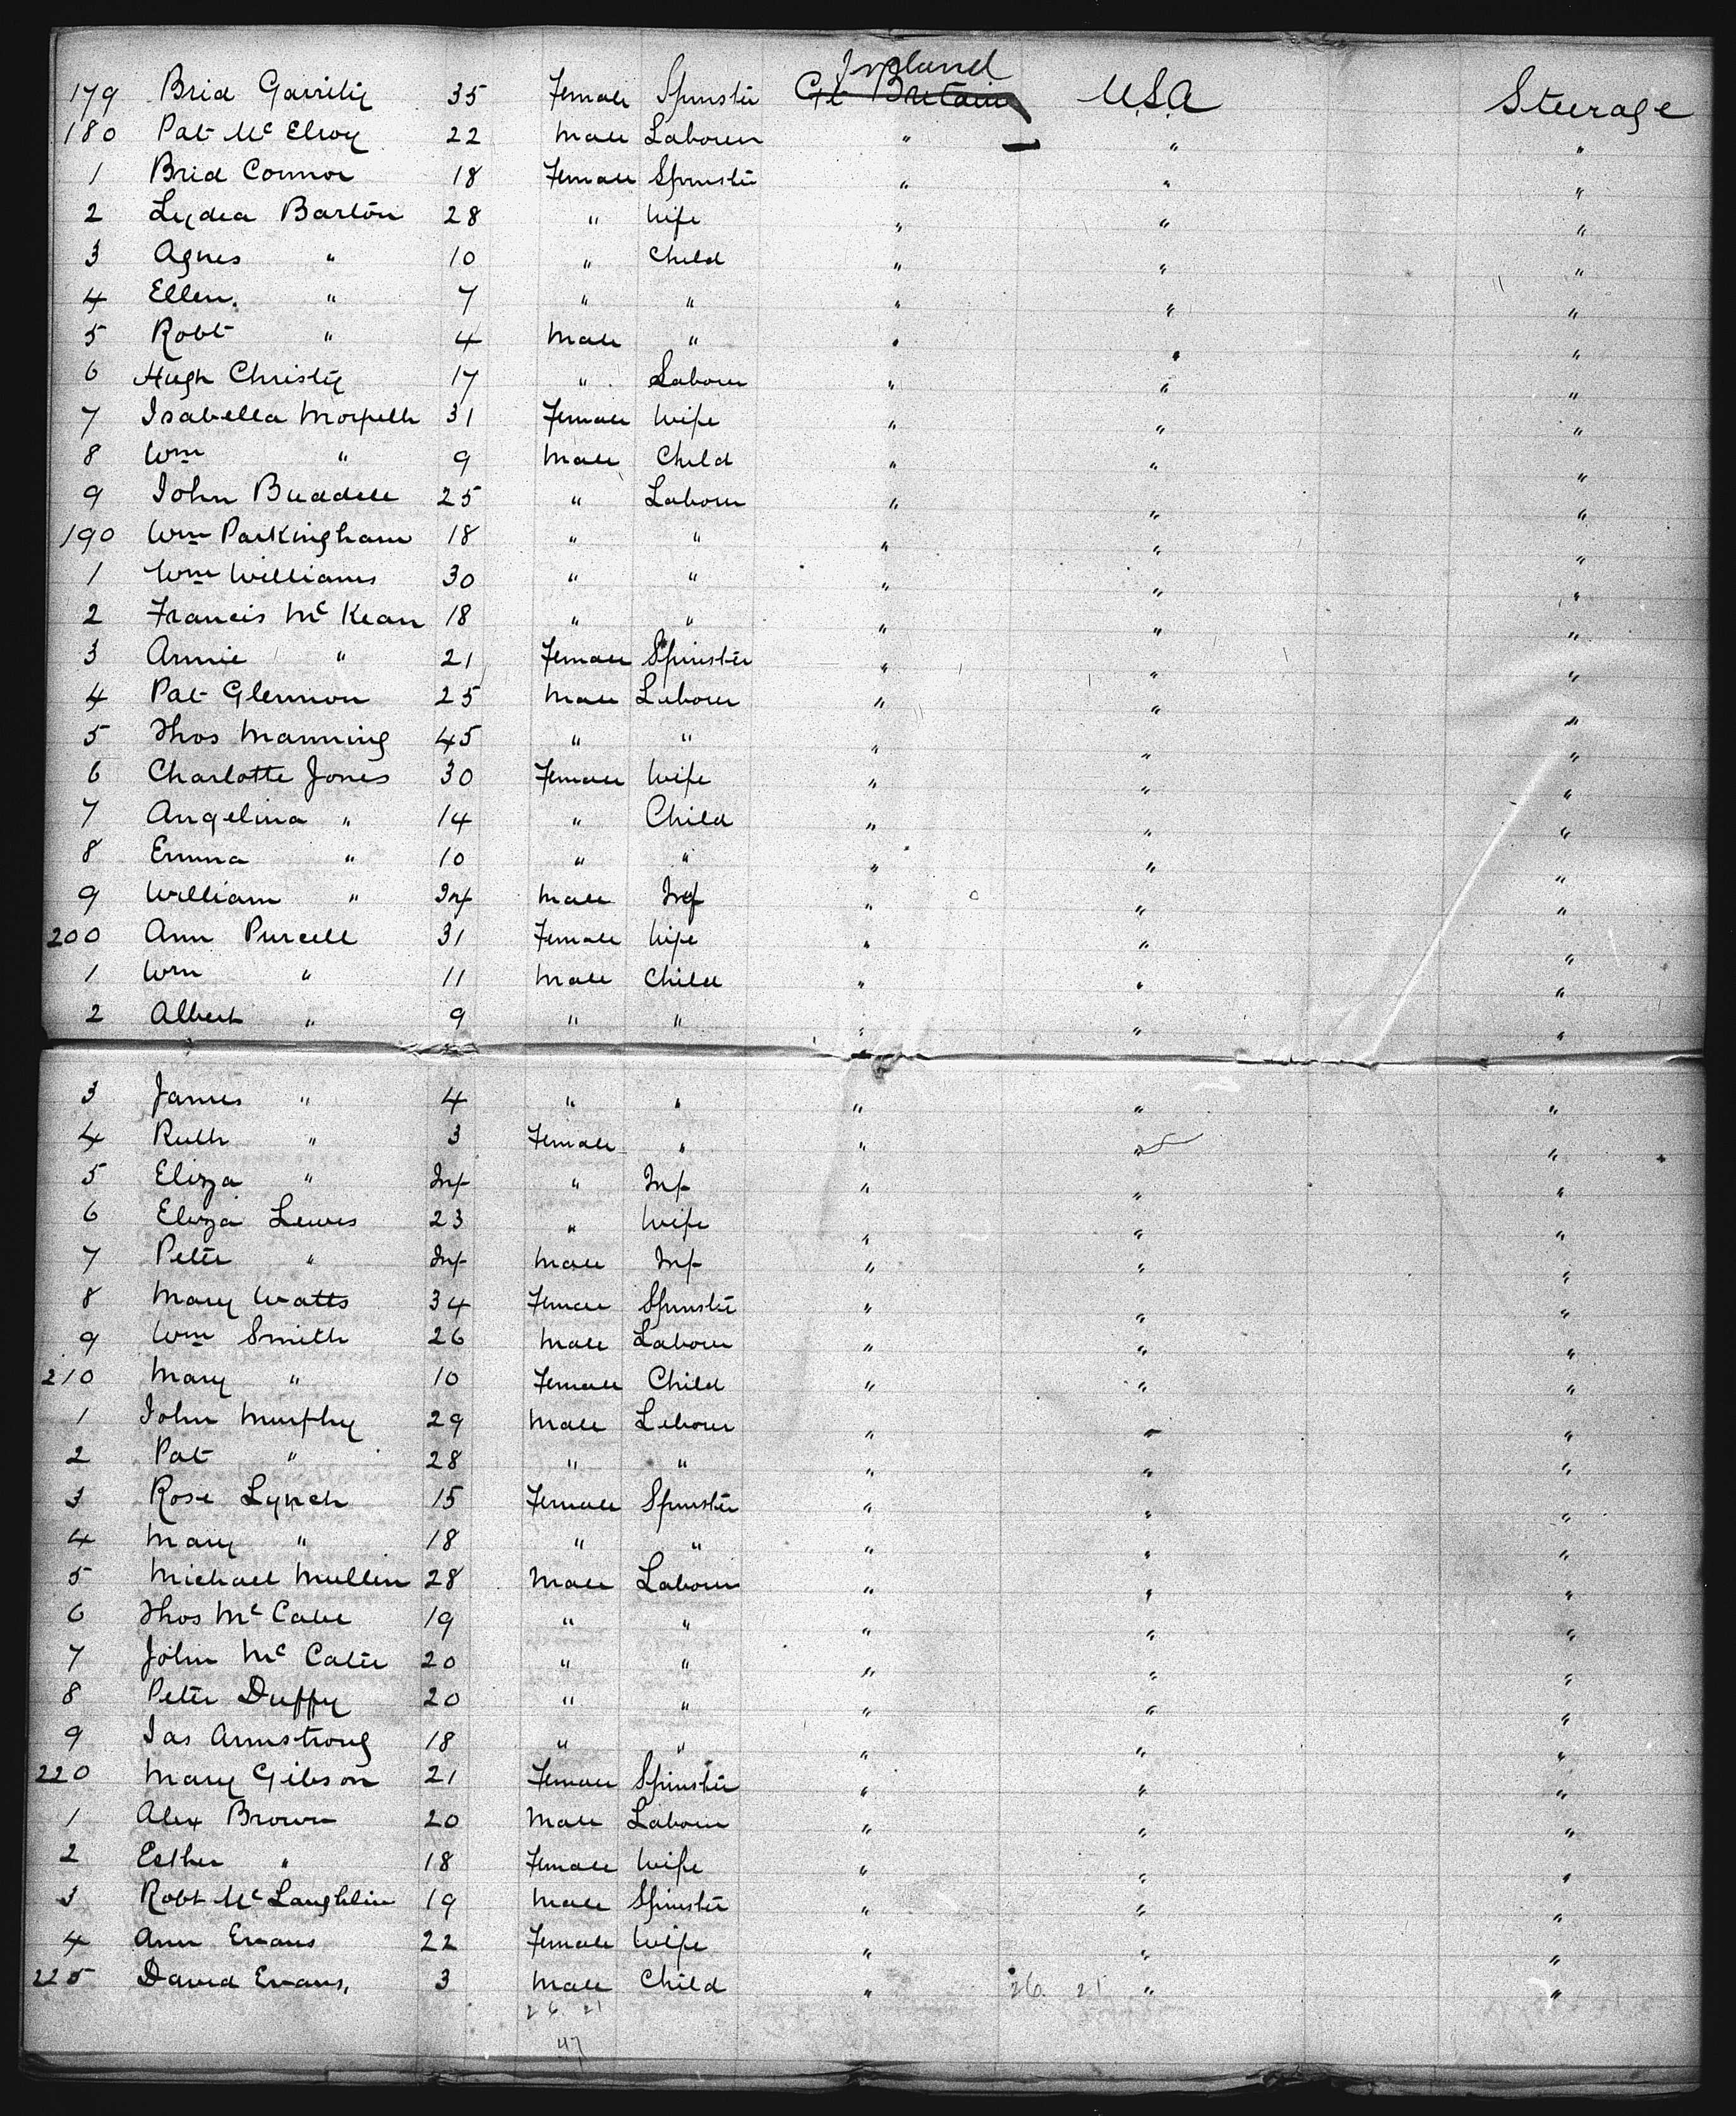 Ireland
179 Brid Garrity 35 Female Spinster Gt Britain U.S.A Steerage
180 Pat McElroy 22 Male Labourer " " "
1 Brid Connor 18 Female Spinster " " "
2 Lydia Barton 28 " Wife " " "
3 Agnes " 10 " Child " " "
4 Ellen " 7 " " " " "
5 Robt " 4 Male " " " "
6 Hugh Christy 17 " Labourer " " "
7 Isabella Morpeth 31 Female Wife " " "
8 Wm " 9 Male Child " " "
9 John Buddell 25 " Labourer " " "
190 Wm Parkingham 18 " " " " "
1 Wm Williams 30 " " " " "
2 Francis McKean 18 " " " " "
3 Annie " 21 Female Spinster " " "
4 Pat Glennon 25 Male Labourer " " "
5 Thos Manning 45 " " " " "
6 Charlotte Jones 30 Female Wife " " "
7 Angelina " 14 " Child " " "
8 Emma " 10 " " " " "
9 William " Inf Male Inf " " "
200 Ann Purcell 31 Female Wife " " "
1 Wm " 11 Male Child " " "
2 Albert " 9 " " " " "
3 James " 4 " " " " "
4 Ruth " 3 Female " " " "
5 Eliza " Inf " Inf " " "
6 Eliza Lewis 23 " Wife " " "
7 Peter " Inf Male Inf " " "
8 Mary Watts 34 Female Spinster " " "
9 Wm Smith 26 Male Labourer " " "
210 Mary " 10 Female Child " " "
1 John Murphy 29 Male Labourer " " "
2 Pat " 28 " " " " "
3 Rose Lynch 15 Female Spinster " " "
4 Mary " 18 " " " " "
5 Michael Mullin 28 Male Labourer " " "
6 Thos McCabe 19 " " " " "
7 John McCabe 20 " " " " "
8 Peter Duffy 20 " " " " "
9 Jas Armstrong 18 " " " " "
220 Mary Gibson 21 Female Spinster " " "
1 Alex Brown 20 Male Labourer " " "
2 Esther " 18 Female Wife " " "
3 Robt McLaughlin 19 Male Spinster " " "
4 Ann Evans 22 Female Wife " " "
225 David Evans, 3 Male Child " 26. 21 " "
26 21
47